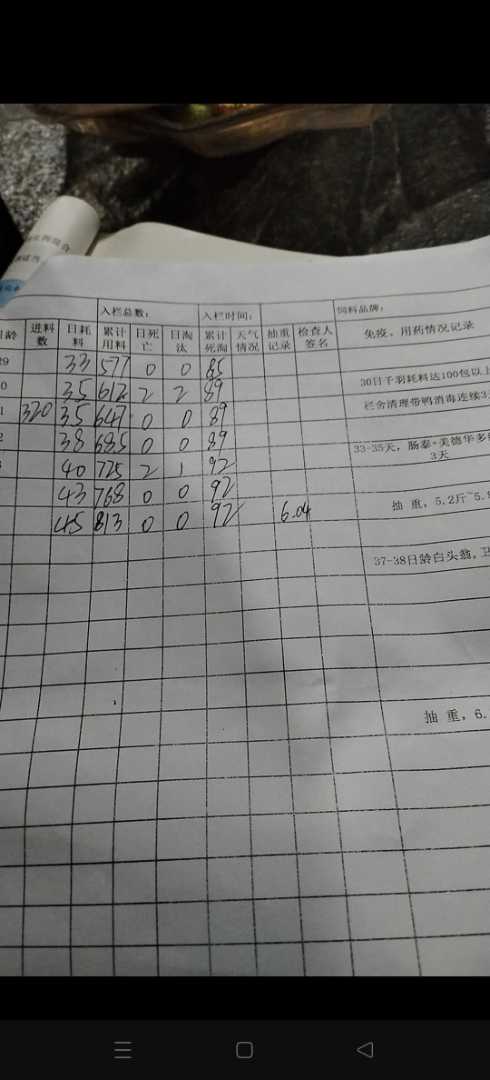 入栏总数： 入栏时间： 饲料品牌：
日龄 进料数 日耗料 累计用料 日死亡 日淘汰 累计死淘 天气情况 抽重记录 检查人签名 免疫、用药情况记录
29 33 577 0 0 85
0 35 612 2 2 89 30日千羽耗料达100包以上
1 320 35 647 0 0 89 栏舍清理带鸭消毒连续3
2 38 685 0 0 89
40 725 2 1 92 33-35天，肠泰+美德华多
3天
43 768 0 0 92
45 813 0 0 92 6.04 抽 重，5.2斤~5.
37-38日龄白头翁，卫
抽 重，6.